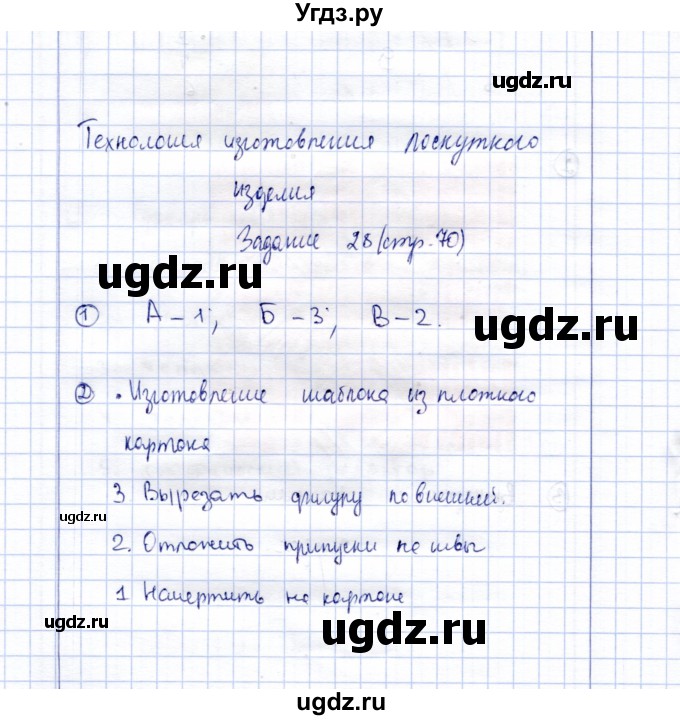 Угдз.ру
ugdz.ru
Технология изготовления лоскутного
изделия
Задание 28 (стр. 70)
ugdz.ru
① А – 1; Б – 3; В – 2.
ugdz.ru
② • Изготовление шаблона из плотного
картона
3 Вырезать фигуру по внешней.
ugdz.ru
2. Отложить припуски на швы
1 Начертить на картоне
ugdz.ru
ugdz.ru
ugdz.ru